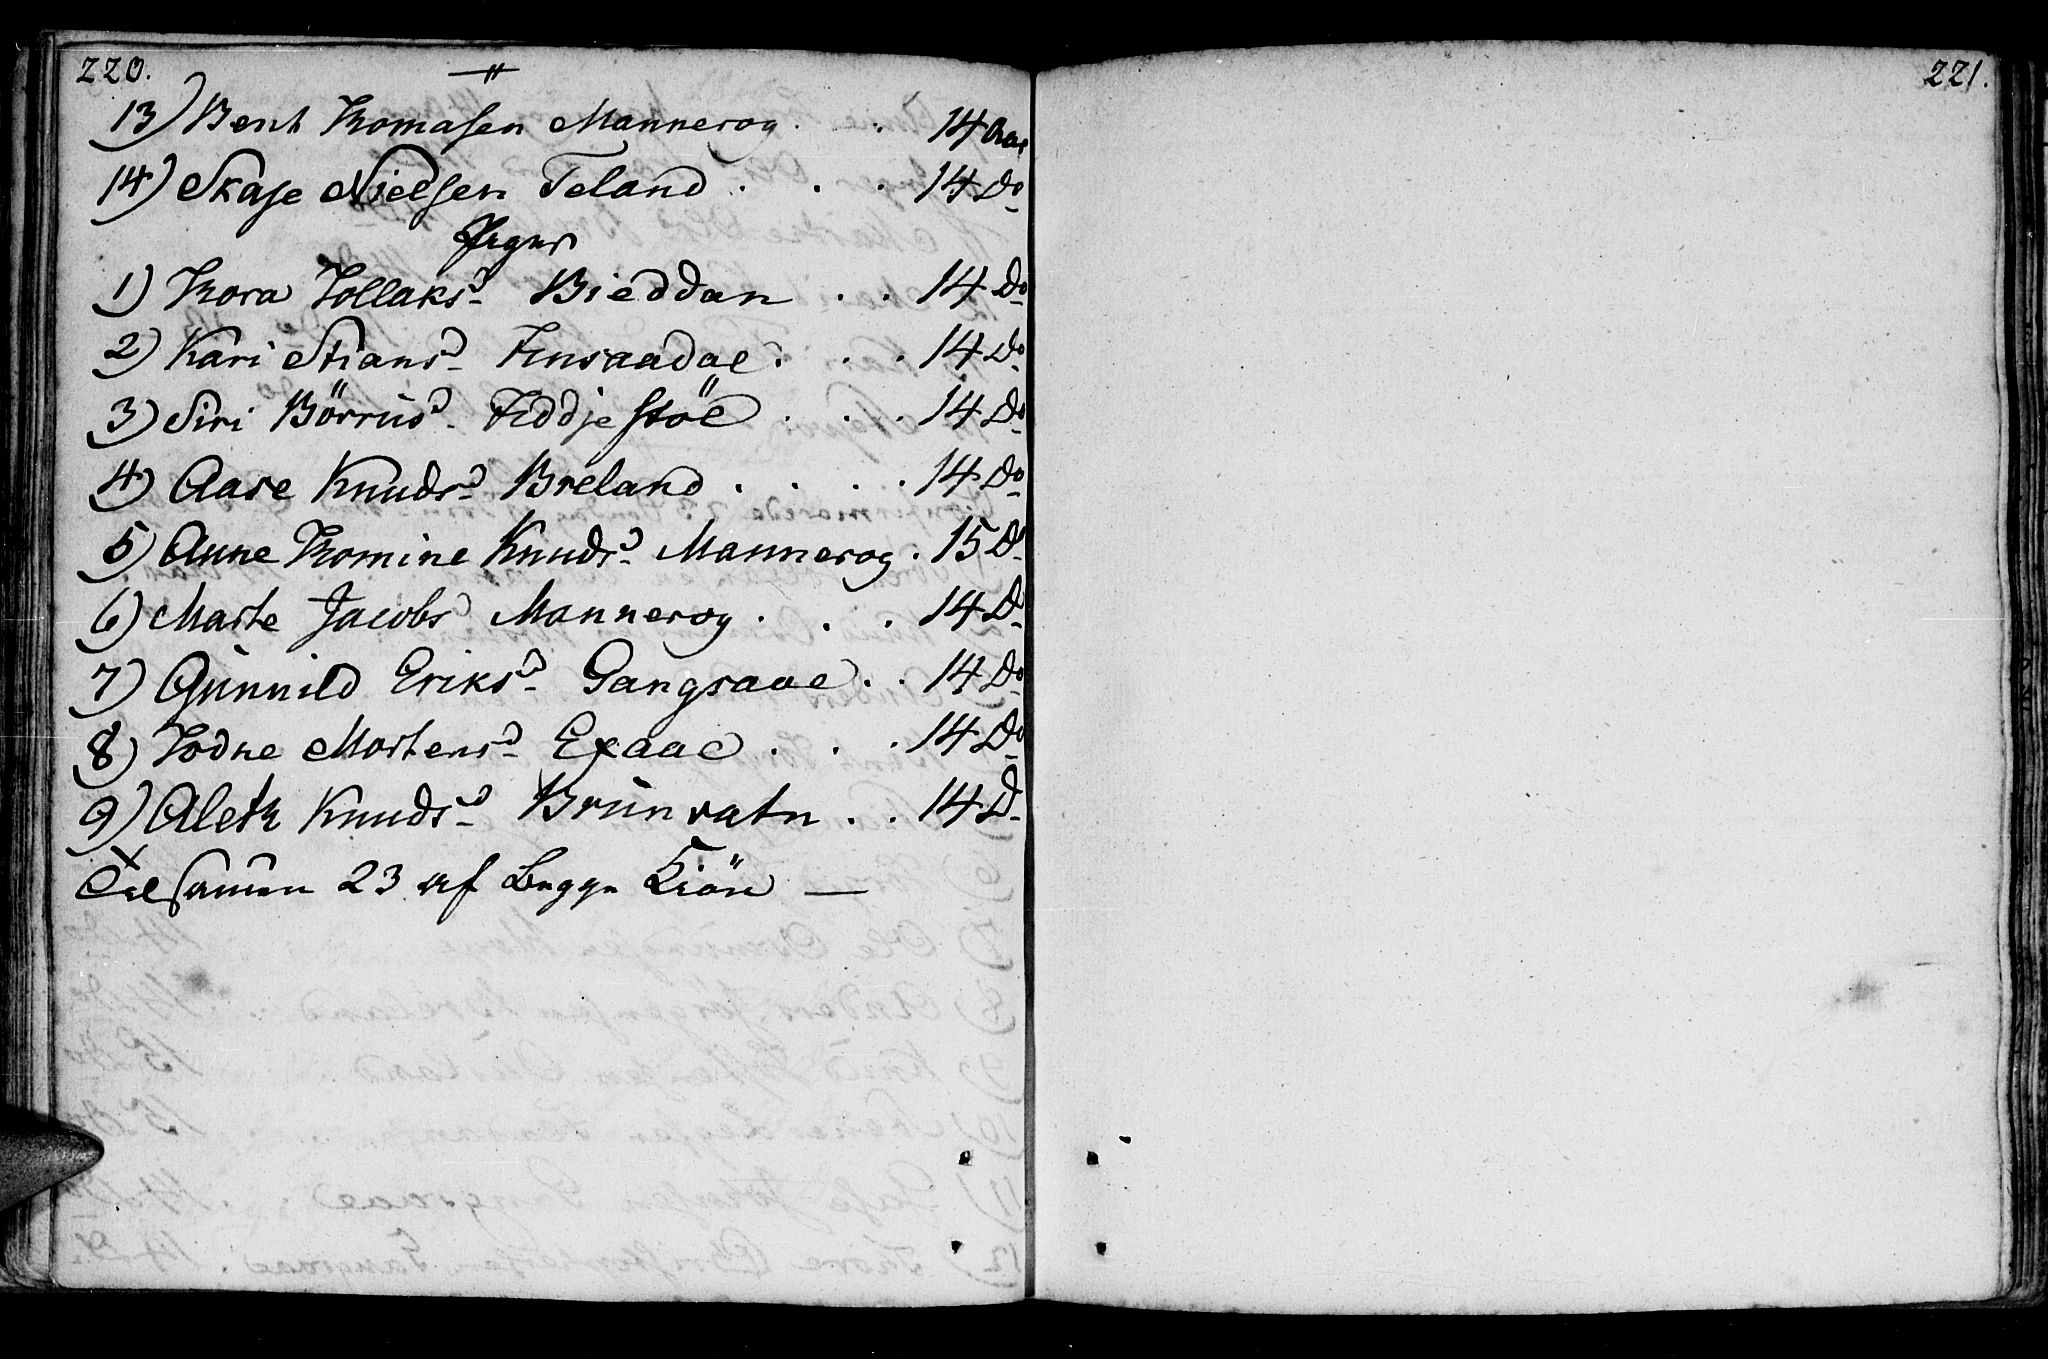 220.
13) Bent Thomasen Mannerog . . 14 Aar
14) Skafse Nielsen Teland . . . 14 Do
Piger
1) Thora Tollaksd Bieddan . . 14 Do
2) Kari Stiansd . . . 14 Do
3) Siri Börrusd Feddjestöl . . . 14 Do
4) Aase Knudsd Breland . . . . 14 Do
5) Anne Thomine Knudsd Mannerog . 15 Do
6) Marte Jacobsd Mannerog . . . 14 Do
7) Gunnild Eriksd Gangsaae . . 14 Do
8) Todne Mortensd . . . 14 Do
9) Aleth Knudsd Brunvatn . . 14 Do
Tilsamen 23 af Begge Kiön —
221.